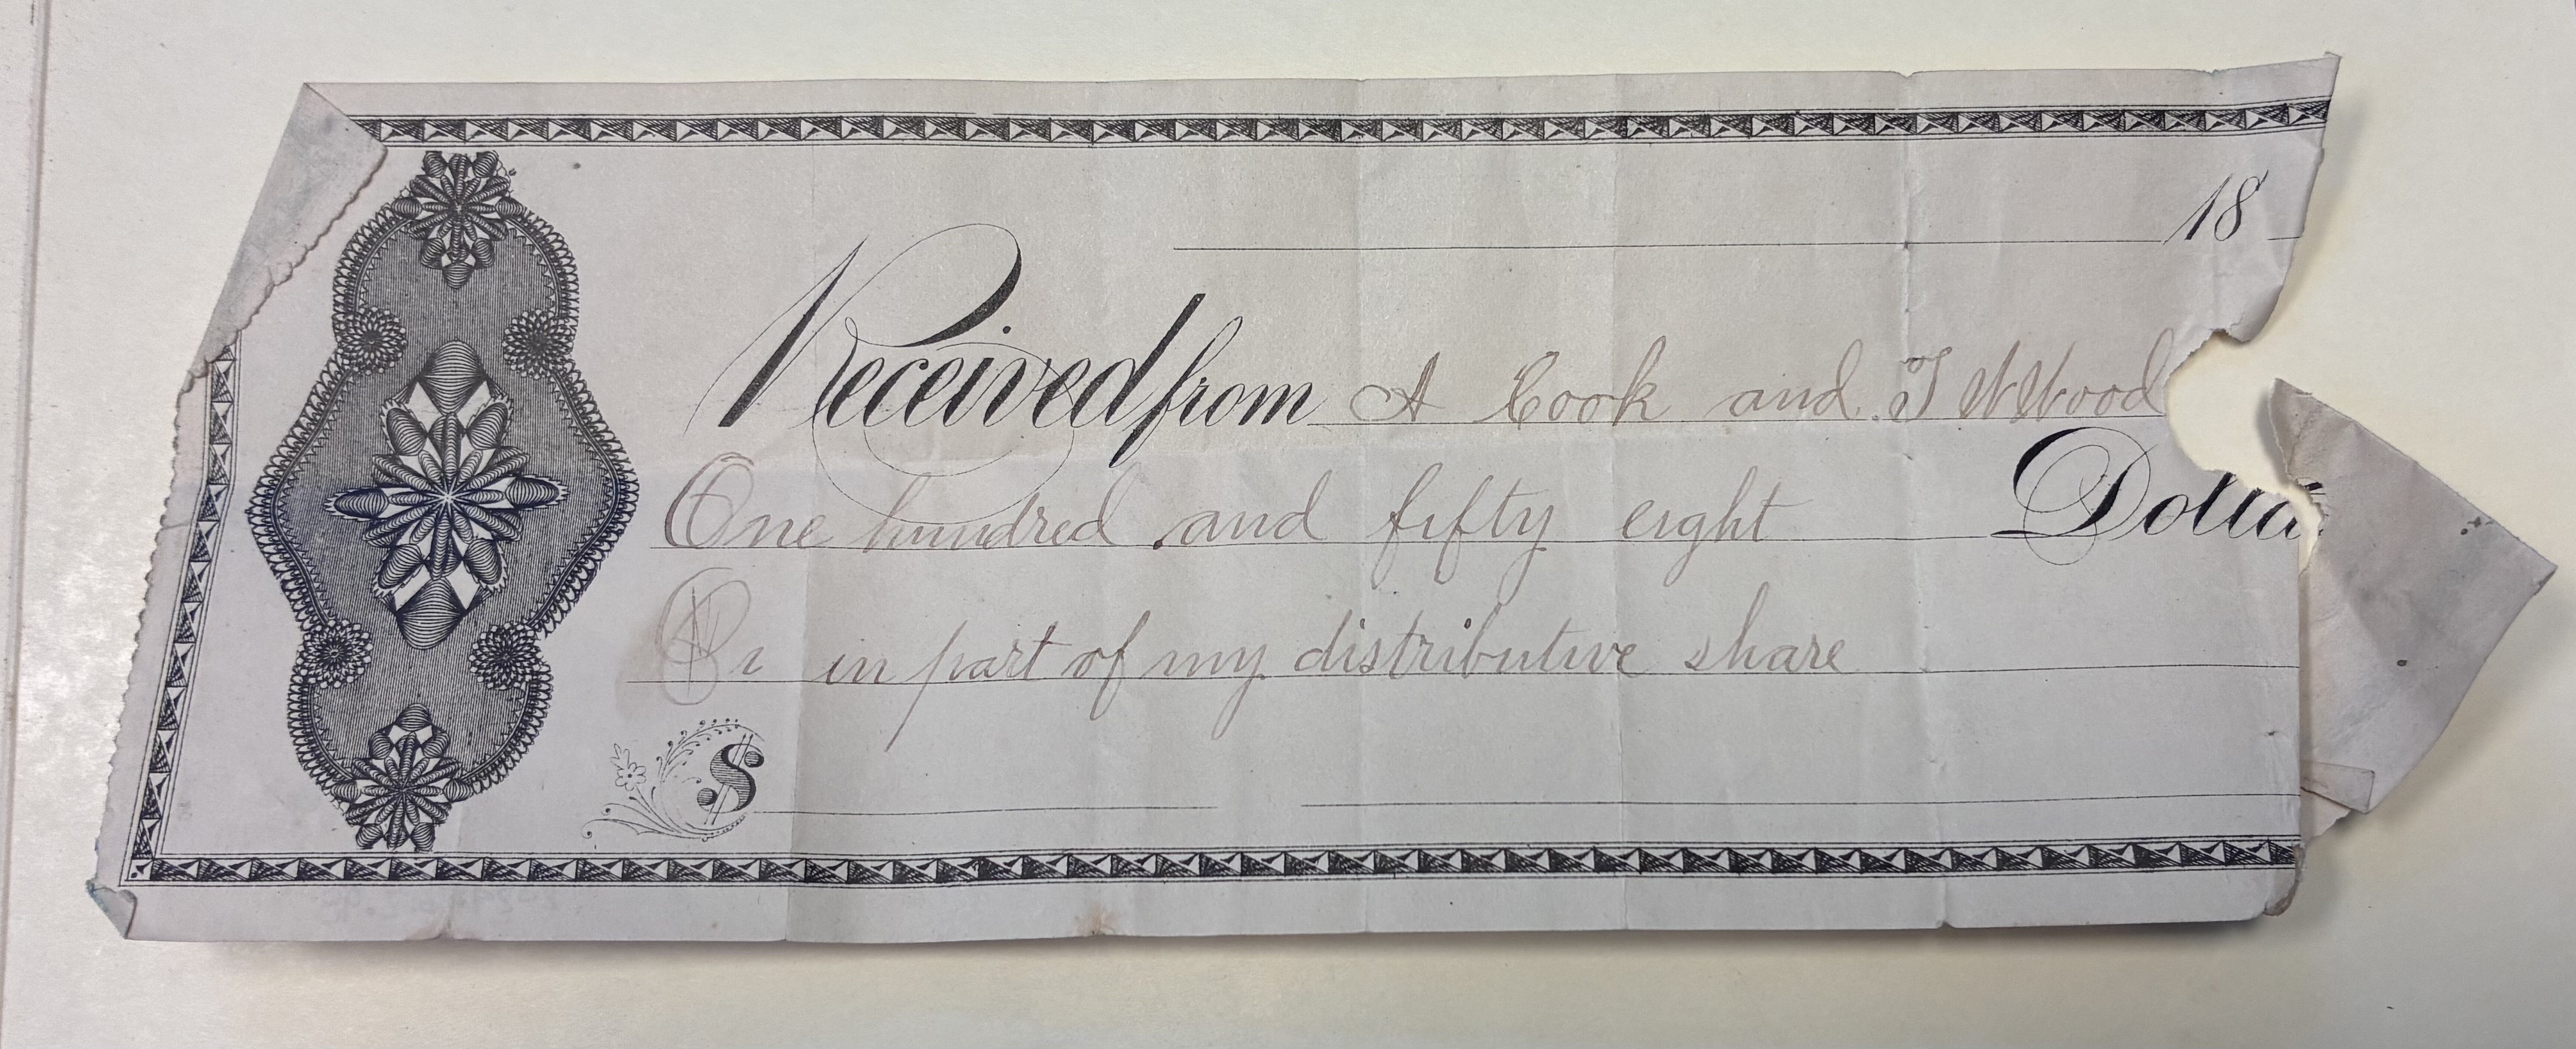 18
Received from A Cook and T W Wood
One hundred and fifty eight Dolla
in part of my distributive share
$